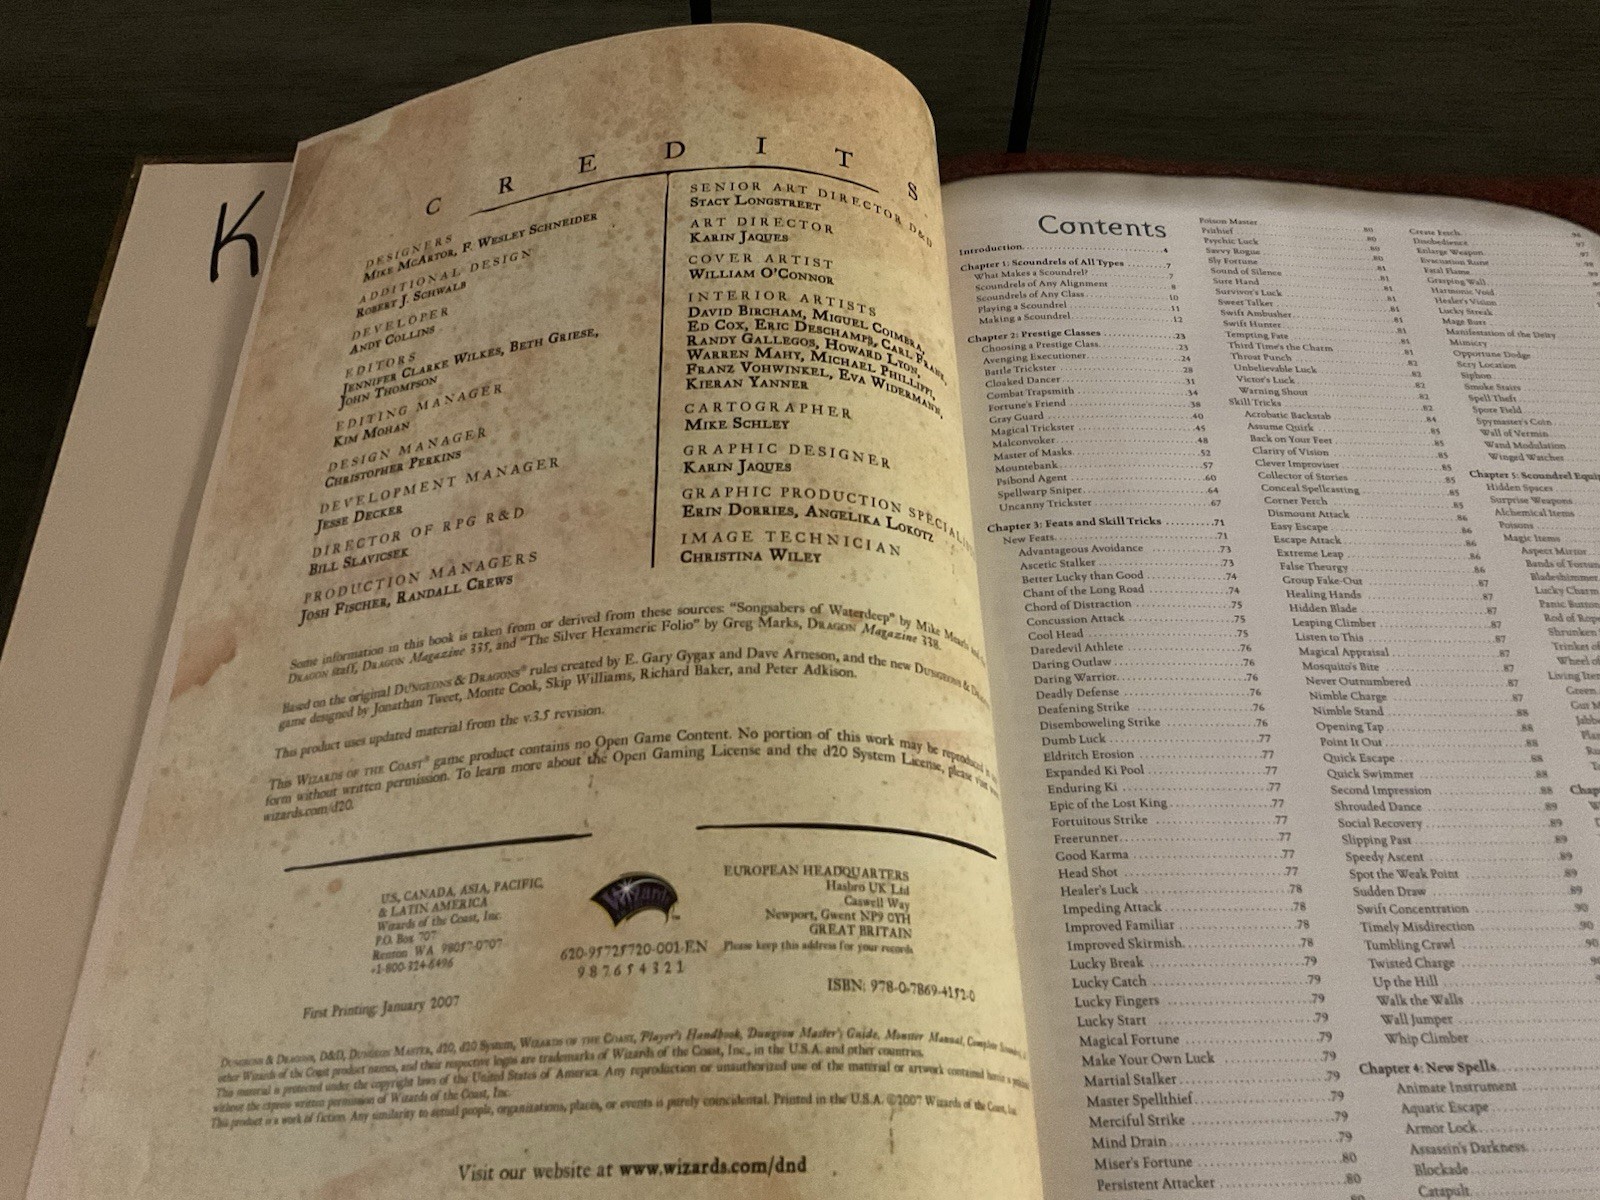 K
CREDITS
DESIGNERS
MIKE MCARTOR, F. WESLEY SCHNEIDER
ADDITIONAL DESIGN
ROBERT J. SCHWALB
DEVELOPER
ANDY COLLINS
EDITORS
JENNIFER CLARKE WILKES, BETH GRIESE,
JOHN THOMPSON
EDITING MANAGER
KIM MOHAN
DESIGN MANAGER
CHRISTOPHER PERKINS
DEVELOPMENT MANAGER
JESSE DECKER
DIRECTOR OF RPG R&D
BILL SLAVICSEK
PRODUCTION MANAGERS
JOSH FISCHER, RANDALL CREWS
SENIOR ART DIRECTOR D&D
STACY LONGSTREET
ART DIRECTOR
KARIN JAQUES
COVER ARTIST
WILLIAM O'CONNOR
INTERIOR ARTISTS
DAVID BIRCHAM, MIGUEL COIMBRA,
ED COX, ERIC DESCHAMPS, CARL FRANK,
RANDY GALLEGOS, HOWARD LYON,
WARREN MAHY, MICHAEL PHILLIPPI,
FRANZ VOHWINKEL, EVA WIDERMANN,
KIERAN YANNER
CARTOGRAPHER
MIKE SCHLEY
GRAPHIC DESIGNER
KARIN JAQUES
GRAPHIC PRODUCTION
ERIN DORRIES, ANGELIKA LOKOTZ
IMAGE TECHNICIAN
CHRISTINA WILEY
Some information in this book is taken from or derived from these sources: "Songsabers of Waterdeep" by Mike
DRAGON staff, DRAGON Magazine 335, and "The Silver Hexameric Folio" by Greg Marks, DRAGON Magazine 338.
Based on the original DUNGEONS & DRAGONS® rules created by E. Gary Gygax and Dave Arneson, and the new DUNGEONS &
game designed by Jonathan Tweet, Monte Cook, Skip Williams, Richard Baker, and Peter Adkison.
This product uses updated material from the v.3.5 revision.
This WIZARDS OF THE COAST® game product contains no Open Game Content. No portion of this work may be reproduced in
form without written permission. To learn more about the Open Gaming License and the d20 System License, please visit
wizards.com/d20.
US, CANADA, ASIA, PACIFIC,
& LATIN AMERICA
Wizards of the Coast, Inc.
P.O. Box 707
Renton WA 98057-0707
+1-800-324-6496
Wizards
620-95725720-001-EN
9 8 7 6 5 4 3 2 1
EUROPEAN HEADQUARTERS
Hasbro UK Ltd
Caswell Way
Newport, Gwent NP9 0YH
GREAT BRITAIN
Please keep this address for your records
ISBN: 978-0-7869-4152-0
First Printing: January 2007
DUNGEONS & DRAGONS, D&D, DUNGEON MASTER, d20, d20 System, WIZARDS OF THE COAST, Player's Handbook, Dungeon Master's Guide, Monster Manual, Complete
other Wizards of the Coast product names, and their respective logos are trademarks of Wizards of the Coast, Inc., in the U.S.A. and other countries.
This material is protected under the copyright laws of the United States of America. Any reproduction or unauthorized use of the material or artwork contained herein is
without the express written permission of Wizards of the Coast, Inc.
This product is a work of fiction. Any similarity to actual people, organizations, places, or events is purely coincidental. Printed in the U.S.A. ©2007 Wizards of the Coast, Inc.
Visit our website at www.wizards.com/dnd
Contents
Introduction 4
Chapter 1: Scoundrels of All Types 7
What Makes a Scoundrel? 7
Scoundrels of Any Alignment 8
Scoundrels of Any Class 10
Playing a Scoundrel 11
Making a Scoundrel 12
Chapter 2: Prestige Classes 23
Choosing a Prestige Class 23
Avenging Executioner 24
Battle Trickster 28
Cloaked Dancer 31
Combat Trapsmith 34
Fortune's Friend 38
Gray Guard 40
Magical Trickster 45
Malconvoker 48
Master of Masks 52
Mountebank 57
Psibond Agent 60
Spellwarp Sniper 64
Uncanny Trickster 67
Chapter 3: Feats and Skill Tricks 71
New Feats 71
Advantageous Avoidance 73
Ascetic Stalker 73
Better Lucky than Good 74
Chant of the Long Road 74
Chord of Distraction 75
Concussion Attack 75
Cool Head 75
Daredevil Athlete 76
Daring Outlaw 76
Daring Warrior 76
Deadly Defense 76
Deafening Strike 76
Disemboweling Strike 76
Dumb Luck 77
Eldritch Erosion 77
Expanded Ki Pool 77
Enduring Ki 77
Epic of the Lost King 77
Fortuitous Strike 77
Freerunner 77
Good Karma 77
Head Shot 77
Healer's Luck 78
Impeding Attack 78
Improved Familiar 78
Improved Skirmish 78
Lucky Break 79
Lucky Catch 79
Lucky Fingers 79
Lucky Start 79
Magical Fortune 79
Make Your Own Luck 79
Martial Stalker 79
Master Spellthief 79
Merciful Strike 79
Mind Drain 79
Miser's Fortune 80
Persistent Attacker 80
80
Poison Master
Psithief 80
Psychic Luck 80
Savvy Rogue 80
Sly Fortune 80
Sound of Silence 81
Sure Hand 81
Survivor's Luck 81
Sweet Talker 81
Swift Ambusher 81
Swift Hunter 81
Tempting Fate 81
Third Time's the Charm 81
Throat Punch 81
Unbelievable Luck 82
Victor's Luck 82
Warning Shout 82
Skill Tricks 82
Acrobatic Backstab 84
Assume Quirk 85
Back on Your Feet 85
Clarity of Vision 85
Clever Improviser 85
Collector of Stories 85
Conceal Spellcasting 85
Corner Perch 85
Dismount Attack 86
Easy Escape 86
Escape Attack 86
Extreme Leap 86
False Theurgy 86
Group Fake-Out 87
Healing Hands 87
Hidden Blade 87
Leaping Climber 87
Listen to This 87
Magical Appraisal 87
Mosquito's Bite 87
Never Outnumbered 87
Nimble Charge 87
Nimble Stand 88
Opening Tap 88
Point It Out 88
Quick Escape 88
Quick Swimmer 88
Second Impression 88
Shrouded Dance 89
Social Recovery 89
Slipping Past 89
Speedy Ascent 89
Spot the Weak Point 89
Sudden Draw 89
Swift Concentration 90
Timely Misdirection 90
Tumbling Crawl 90
Twisted Charge
Up the Hill
Walk the Walls
Wall Jumper
Whip Climber
Chapter 4: New Spells
Animate Instrument
Aquatic Escape
Armor Lock
Assassin's Darkness
Blockade
Catapult
Create Fetch
Disobedience
Enlarge Weapon
Evacuation Rune
Fatal Flame
Grasping Wall
Harmonic Void
Healer's Vision
Lucky Streak
Mage Burr
Manifestation of the Deity
Mimicry
Opportune Dodge
Scry Location
Siphon
Smoke Stairs
Spell Theft
Spore Field
Spymaster's Coin
Wall of Vermin
Wand Modulation
Winged Watcher
Chapter 5: Scoundrel
Hidden Spaces
Surprise Weapons
Alchemical Items
Poisons
Magic Items
Aspect Mirror
Bands of
Bladeshimmer
Lucky Charm
Panic Button
Rod of
Shrunken
Trinket of
Wheel of
Living
Green